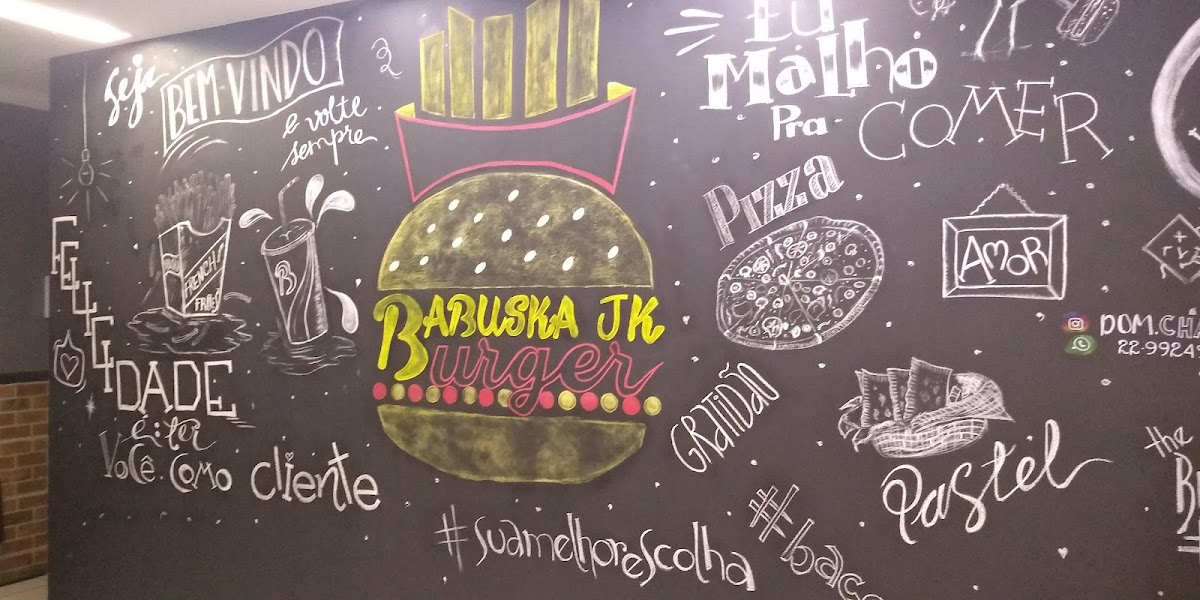 Seja
BEM-VINDO
e volte
sempre
FRENCH!
FRIES
B
FELICIDADE
é: ter
Você como cliente
BABUSKA JK
Burger
#suamelhorescolha
EU
MALHO
Pra
COMER
Pizza
AMOR
GRATIDÃO
Pastel
DOM.CHA
22-9924
the
#baco